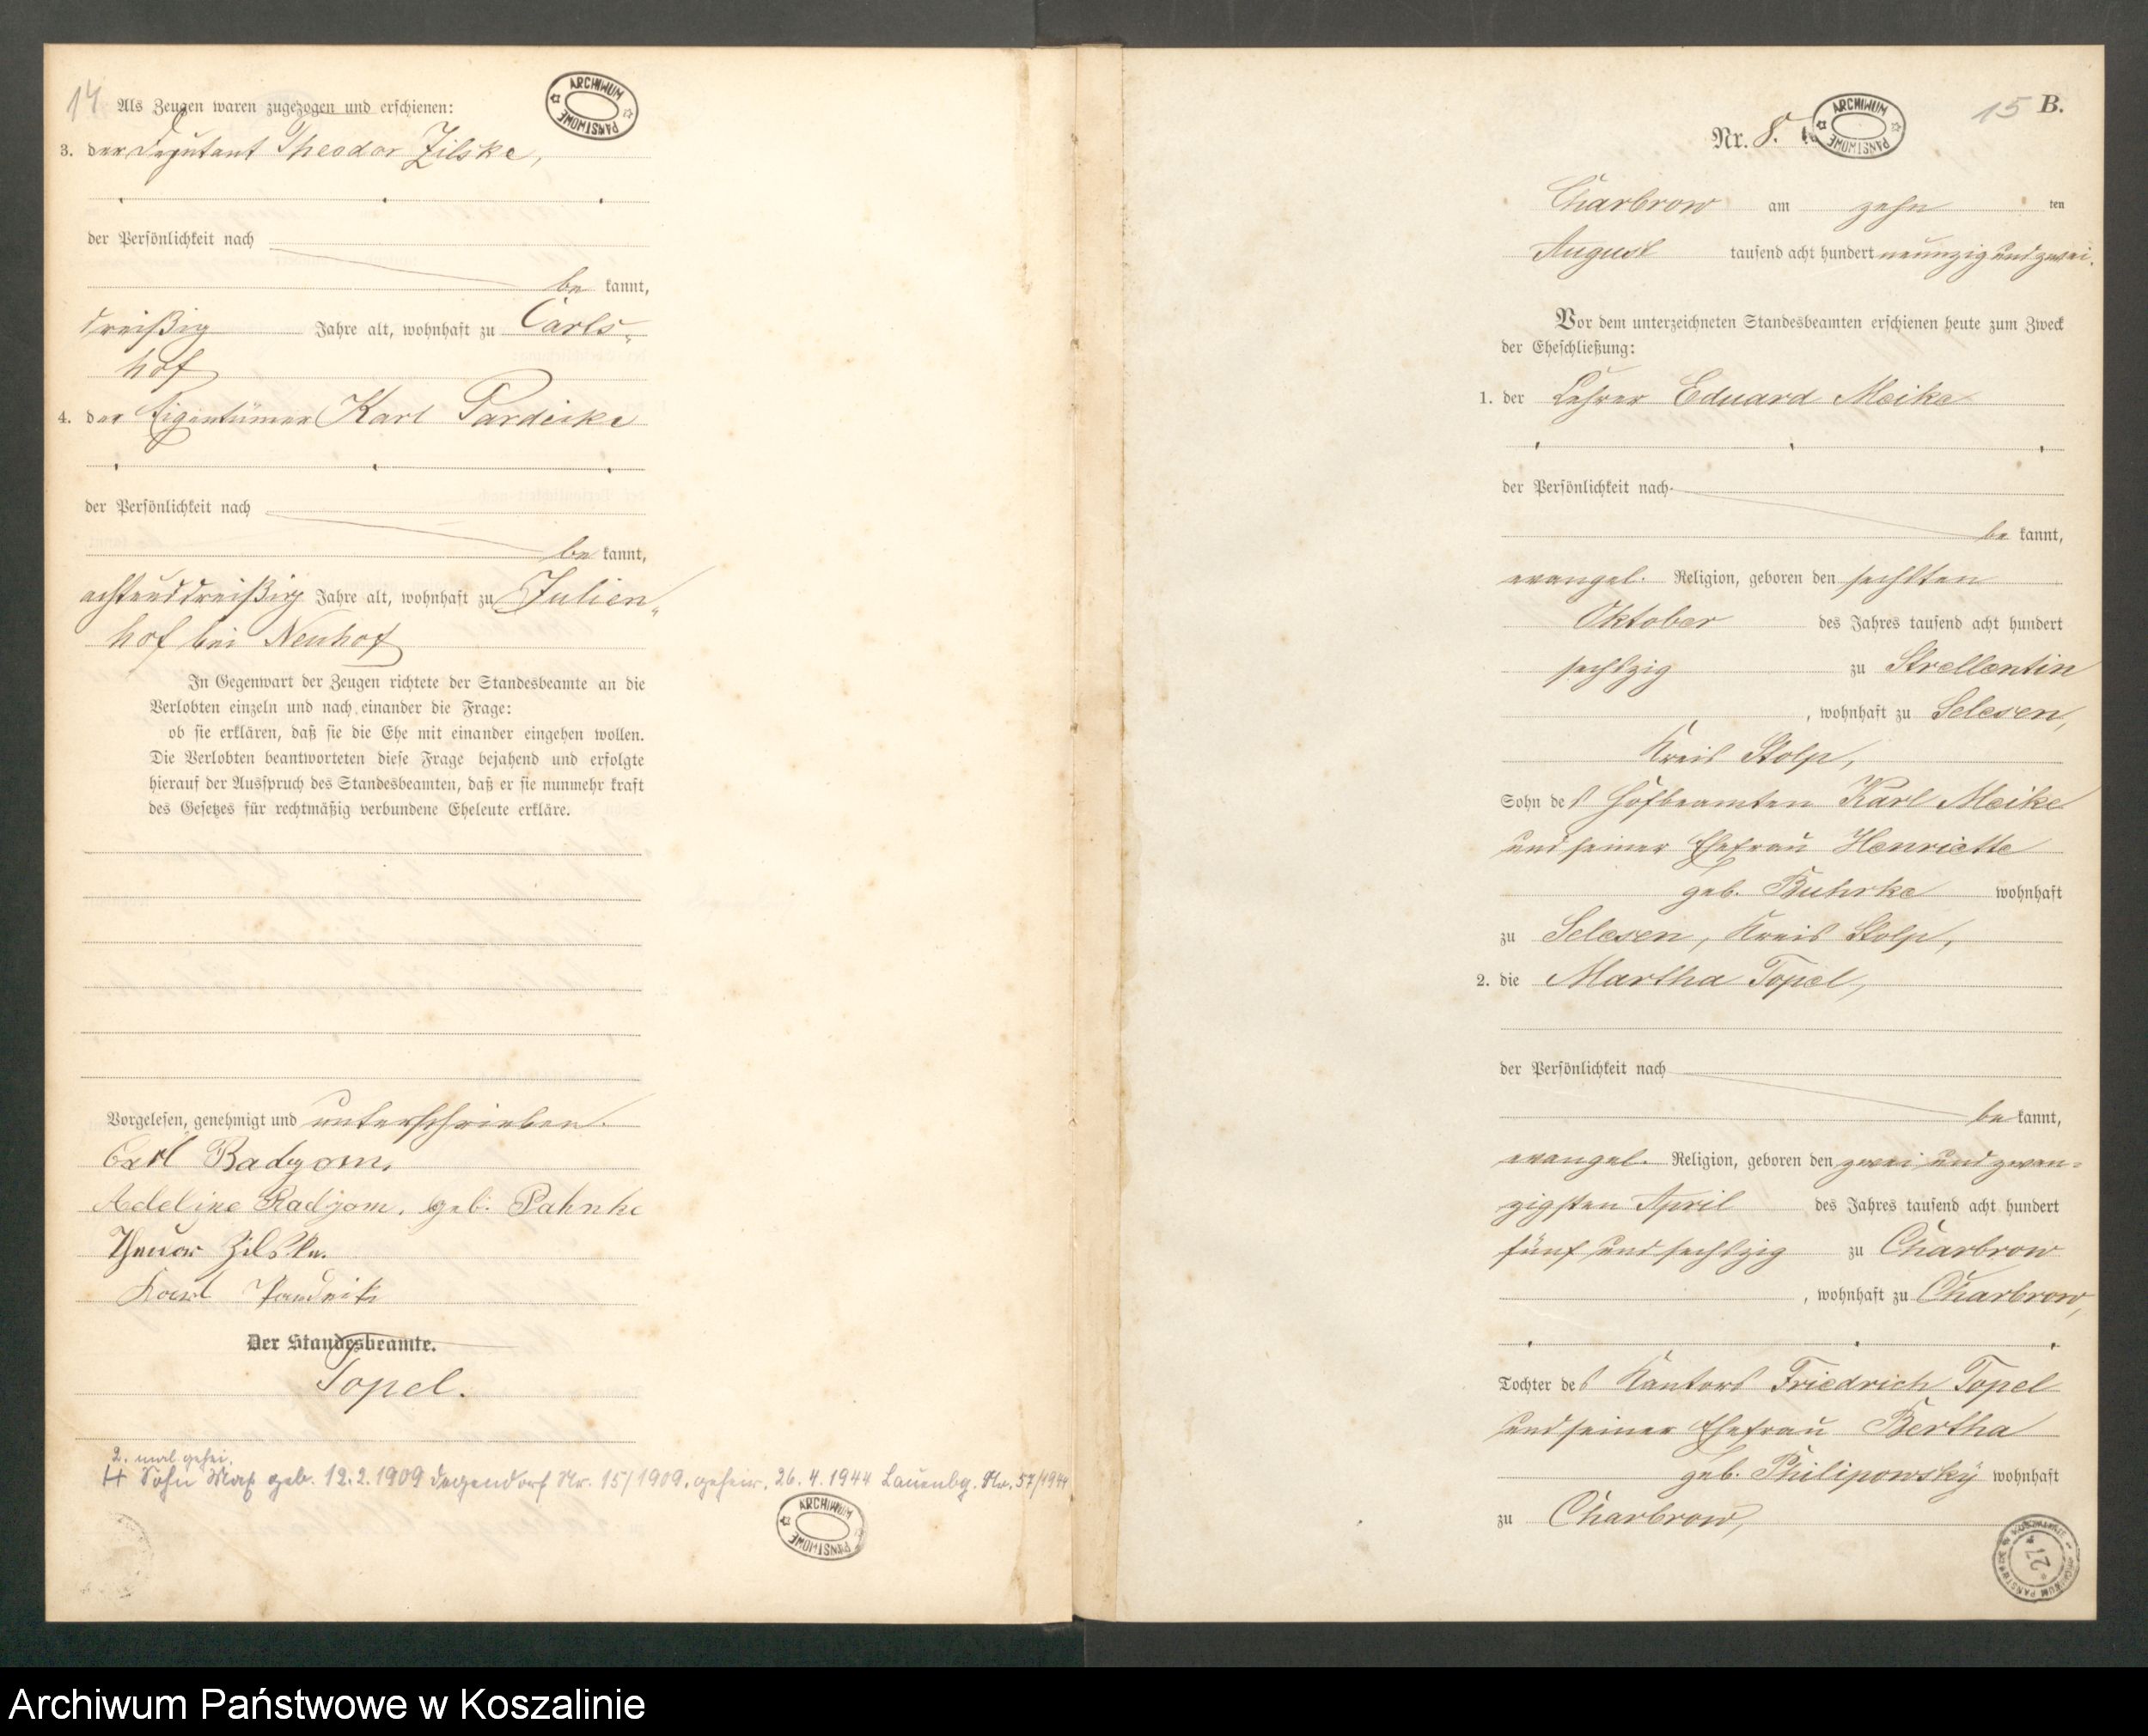 14
Als Zeugen waren zugezogen und erschienen:
3. der Deputant Theodor Zilske,
der Persönlichkeit nach
be kannt,
dreißig Jahre alt, wohnhaft zu Carls-
hof
4. der Eigentümer Karl Pardeike
der Persönlichkeit nach
be kannt,
achtunddreißig Jahre alt, wohnhaft zu Julien-
hof bei Neuhof
In Gegenwart der Zeugen richtete der Standesbeamte an die
Verlobten einzeln und nach einander die Frage:
ob sie erklären, daß sie die Ehe mit einander eingehen wollen.
Die Verlobten beantworteten diese Frage bejahend und erfolgte
hierauf der Ausspruch des Standesbeamten, daß er sie nunmehr kraft
des Gesetzes für rechtmäßig verbundene Eheleute erkläre.
Vorgelesen, genehmigt und unterschrieben.
Carl Radzom.
Adeline Radzom, geb. Pahnke
Zilske.
Karl
Der Standesbeamte.
Topel.
2. mal gehei.
Sohn Max geb. 12.2.1909 Degendorf Nr. 15/1909, geheir. 26.4.1944 Lauenbg. Nr. 57/1944
ARCHIWUM PAŃSTWOWE
ARCHIWUM PAŃSTWOWE
15 B.
Nr. 8.
ARCHIWUM PAŃSTWOWE
Charbrow am zehn ten
August tausend acht hundert neunzig und zwei.
Vor dem unterzeichneten Standesbeamten erschienen heute zum Zweck
der Eheschließung:
1. der Lehrer Eduard Meike
der Persönlichkeit nach
be kannt,
evangel. Religion, geboren den sechsten
Oktober des Jahres tausend acht hundert
sechszig zu Strellentin
, wohnhaft zu Selesen,
Kreis Stolp,
Sohn des Hofbeamten Karl Meike
und seiner Ehefrau Henriette
geb. Buhrke wohnhaft
zu Selesen, Kreis Stolp,
2. die Martha Topel,
der Persönlichkeit nach
be kannt,
evangel. Religion, geboren den zwei und zwan-
zigsten April des Jahres tausend acht hundert
fünf und sechszig zu Charbrow
, wohnhaft zu Charbrow,
Tochter des Kantors Friedrich Topel
und seiner Ehefrau Bertha
geb. Philipowsky wohnhaft
zu Charbrow,
27
Archiwum Państwowe w Koszalinie